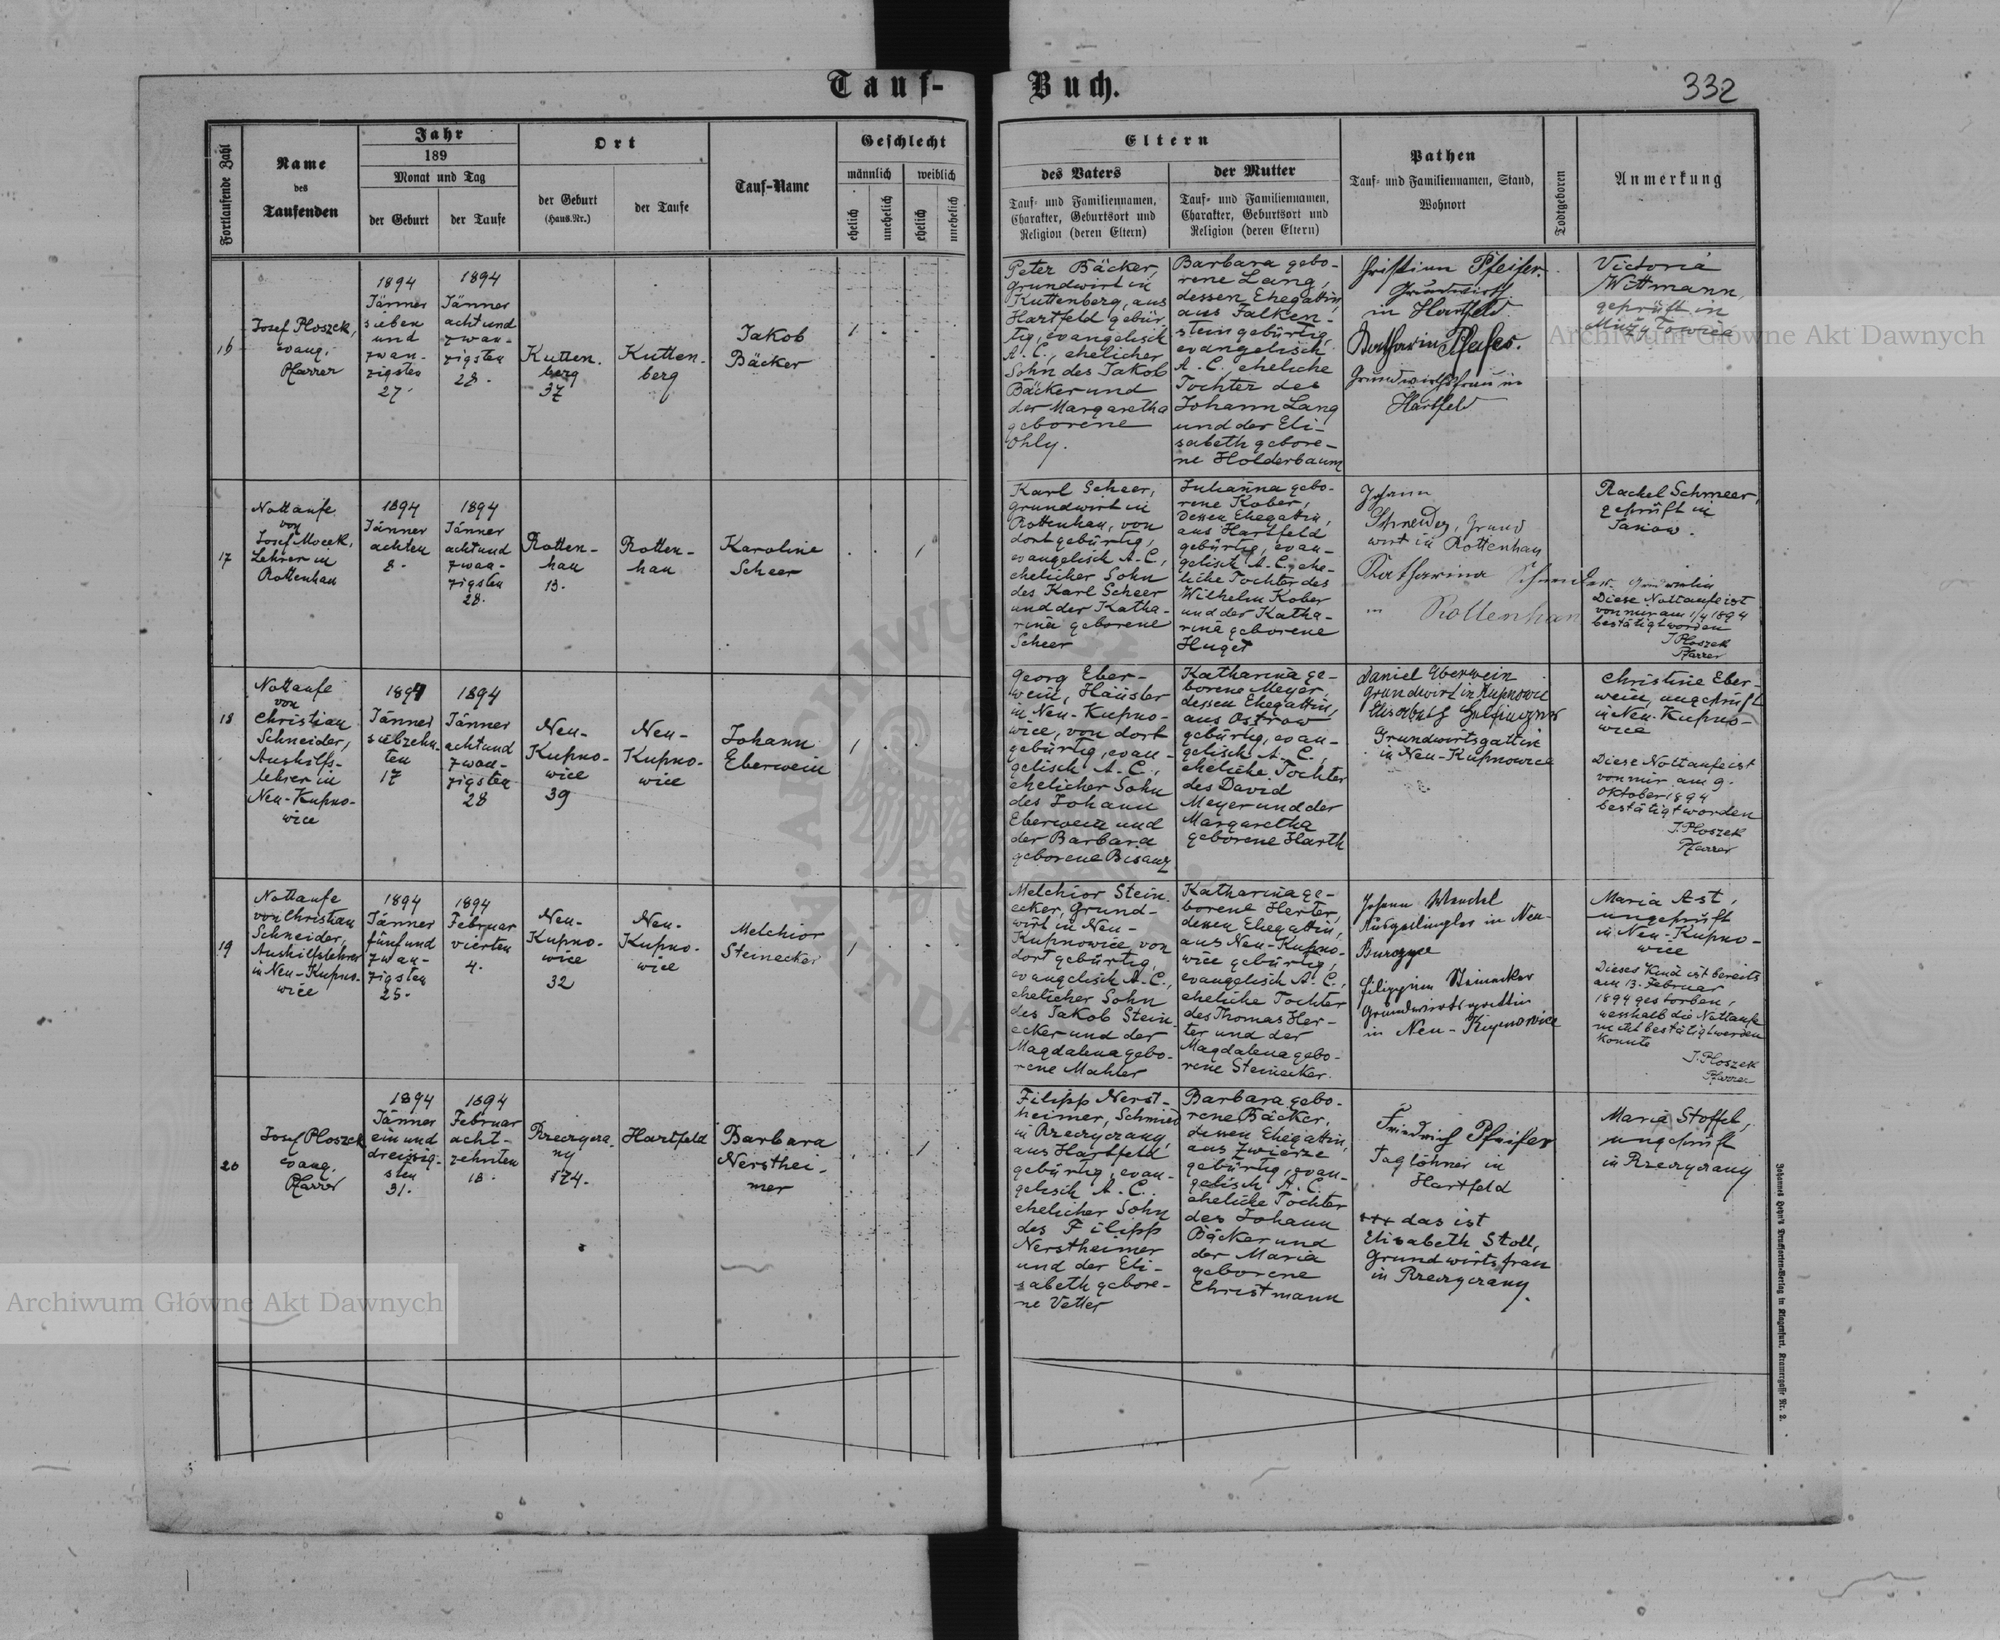 Tauf-Buch.
332
Fortlaufende Zahl
Name
des
Taufenden
Jahr
189
Monat und Tag
der Geburt
der Taufe
Ort
der Geburt
(Haus-Nr.)
der Taufe
Tauf-Name
Geschlecht
männlich
weiblich
ehelich
unehelich
ehelich
unehelich
Eltern
des Vaters
Tauf- und Familiennamen,
Charakter, Geburtsort und
Religion (deren Eltern)
der Mutter
Tauf- und Familiennamen,
Charakter, Geburtsort und
Religion (deren Eltern)
Pathen
Tauf- und Familiennamen, Stand,
Wohnort
Todtgeboren
Anmerkung
16
Josef Ploszek,
evang.
Pfarrer
1894
Jänner
sieben
und
zwan-
zigsten
27.
1894
Jänner
acht und
zwan-
zigsten
28.
Kutten-
berg
37
Kutten-
berg
Jakob
Bäcker
1
Peter Bäcker,
Grundwirt in
Kuttenberg, aus
Hartfeld gebür-
tig, evangelisch
A. C., ehelicher
Sohn des Jakob
Bäcker und
der Margaretha
geborene
Ohly.
Barbara gebo-
rene Lang,
dessen Ehegattin,
aus Falken-
stein gebürtig,
evangelisch
A. C., eheliche
Tochter des
Johann Lang
und der Eli-
sabeth gebore-
ne Holderbaum
Christian Pfeifer
Grundwirth
in Hartfeld
Katharina Pfeifer.
Grundwirthsfrau in
Hartfeld
Victoria
Wittmann,
geprüft in
Mużyłowice
17
Nottaufe
von
Josef Mocek,
Lehrer in
Rottenhan
1894
Jänner
achten
8.
1894
Jänner
acht und
zwan-
zigsten
28.
Rotten-
han
13.
Rotten-
han
Karoline
Scheer
1
Karl Scheer,
Grundwirt in
Rottenhan, von
dort gebürtig,
evangelisch A. C.,
ehelicher Sohn
des Karl Scheer
und der Katha-
rina geborene
Scheer
Julianna gebo-
rene Kober,
dessen Ehegattin,
aus Hartfeld
gebürtig, evan-
gelisch A. C., ehe-
liche Tochter des
Wilhelm Kober
und der Katha-
rina geborene
Huget
Johann
Schneider, Grund
wirt in Rottenhan
Katharina Schneider
in Rottenhan
Rachel Schmeer,
geprüft in
Janow.
Diese Nottaufe ist
von mir am 1/4 1894
bestätigt worden
J. Ploszek
Pfarrer
18
Nottaufe
von
Christian
Schneider,
Aushilfs-
lehrer in
Neu-Kupno-
wice
1894
Jänner
siebzehn-
ten
17
1894
Jänner
acht und
zwan-
zigsten
28
Neu-
Kupno-
wice
39
Neu-
Kupno-
wice
Johann
Eberwein
1
Georg Eber-
wein, Häusler
in Neu-Kupno-
wice, von dort
gebürtig, evan-
gelisch A. C.,
ehelicher Sohn
des Johann
Eberwein und
der Barbara
geborene Bisanz
Katharina ge-
borene Meyer,
dessen Ehegattin,
aus Ostrow
gebürtig, evan-
gelisch A. C.,
eheliche Tochter
des David
Meyer und der
Margaretha
geborene Harth
Daniel Eberwein
Grundwirt in Kupnowice
Elisabeth
Grundwirtsgattin
in Neu-Kupnowice
Christine Eber-
wein, ungeprüft
in Neu-Kupno-
wice
Diese Nottaufe ist
von mir am 9.
Oktober 1894
bestätigt worden
J. Ploszek
Pfarrer
19
Nottaufe
von Christian
Schneider,
Aushilfslehrer
in Neu-Kupno-
wice
1894
Jänner
fünf und
zwan-
zigsten
25.
1894
Februar
vierten
4.
Neu-
Kupno-
wice
32
Neu-
Kupno-
wice
Melchior
Steinecker
1
Melchior Stein-
ecker, Grund-
wirt in Neu-
Kupnowice, von
dort gebürtig,
evangelisch A. C.,
ehelicher Sohn
des Jakob Stein-
ecker und der
Magdalena gebo-
rene Mahler
Katharina ge-
borene Herter,
dessen Ehegattin,
aus Neu-Kupno-
wice gebürtig,
evangelisch A. C.,
eheliche Tochter
des Thomas Her-
ter und der
Magdalena gebo-
rene Steinecker.
Johann Wendel
in Neu-
Burczyce
Filippina Steinecker
Grundwirtsgattin
in Neu-Kupnowice
Maria Ast,
ungeprüft
in Neu-Kupno-
wice
Dieses Kind ist bereits
am 13. Februar
1894 gestorben,
weshalb die Nottaufe
nicht bestätigt werden
konnte
J. Ploszek
Pfarrer
20
Josef Ploszek
evang.
Pfarrer
1894
Jänner
ein und
dreissig-
sten
31.
1894
Februar
acht-
zehnten
18.
Rzeczycza-
ny
174.
Hartfeld
Barbara
Nersthei-
mer
1
Filipp Nerst-
heimer, Schmied
in Rzeczyczany,
aus Hartfeld
gebürtig, evan-
gelisch A. C.
ehelicher Sohn
des Filipp
Nerstheimer
und der Eli-
sabeth gebore-
ne Vetter
Barbara gebo-
rene Bäcker,
dessen Ehegattin,
aus Zwierze
gebürtig, evan-
gelisch A. C.
eheliche Tochter
des Johann
Bäcker und
der Maria
geborene
Christmann
Friedrich Pfeifer
Taglöhner in
Hartfeld
+++ das ist
Elisabeth Stoll,
Grundwirtsfrau
in Rzeczyczany.
Maria Stoffel,
ungeprüft
in Rzeczyczany
Johannes Heyn's Drucksorten-Verlag in Klagenfurt, Kramergasse Nr. 2.
Archiwum Główne Akt Dawnych
Archiwum Główne Akt Dawnych